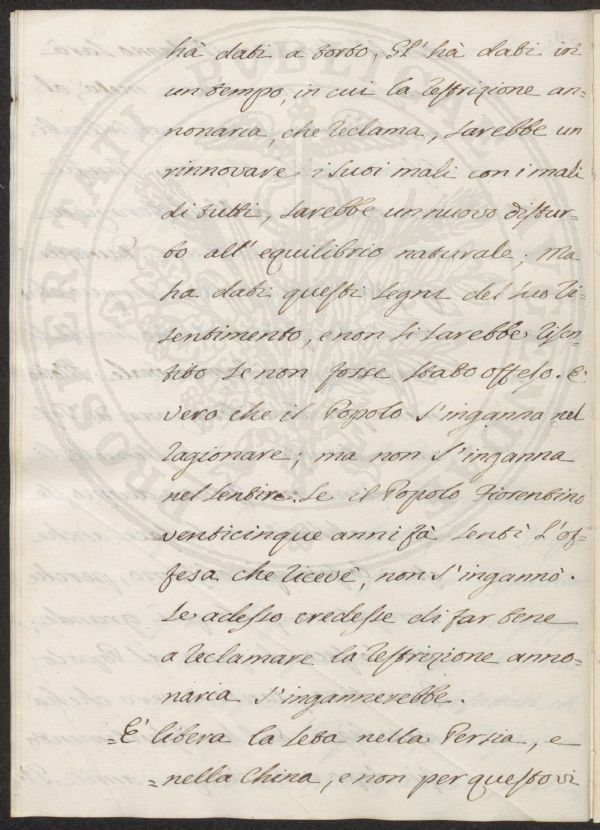 hà dati a torto, Gl' hà dati in
un tempo, in cui la restrizione an-
nonaria, che reclama, sarebbe un
rinnovare i suoi mali con i mali
di tutti, sarebbe un nuovo distur-
bo all' equilibrio naturale; Ma
ha dati questi segni del suo ri-
sentimento, e non si sarebbe risen-
tito se non fosse stato offeso. È
vero che il Popolo s'inganna nel
ragionare; ma non s'inganna
nel sentire: Se il Popolo Fiorentino
venticinque anni fà sentì l'of-
fesa che ricevè, non s'ingannò.
Se adesso credesse di far bene
a reclamare la restrizione anno-
naria s'ingannerebbe.
=È libera la seta nella Persia, e
=nella China, e non per questo vi